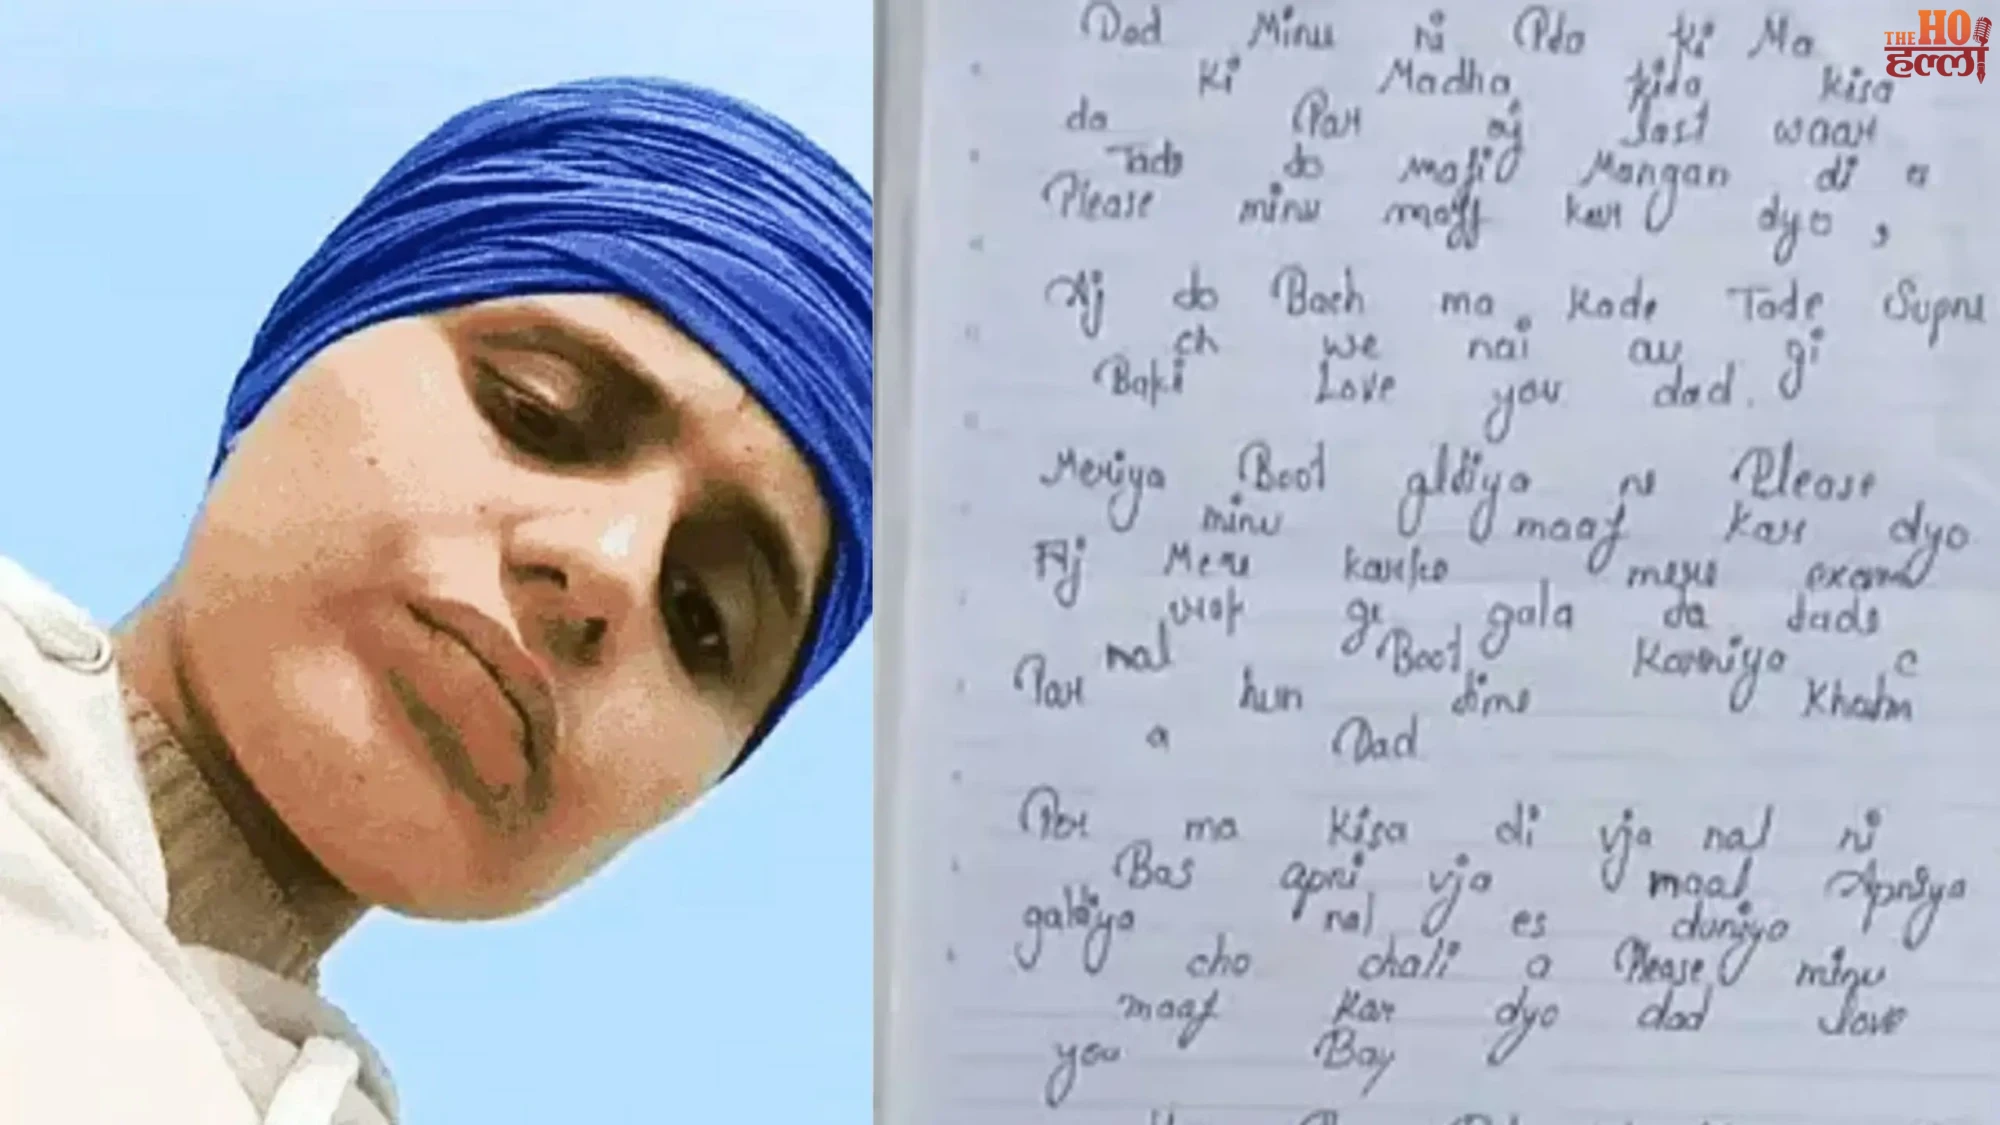 THE HO
हल्ला
Dad Minu ni Pta ki Ma
Ki Madha kita kisa
da Par aj last waar
Tado do mafi Mangan di a
Please minu maff kar dyo,
Aj do Bach ma kade Tade Supne
ch we nai au gi
Baki Love you dad.
Meriya Boot gldiya ne Please
minu maaf kar dyo
Aj Mere karke mere exam
gi gala da dads
nal Boot Karniya c
Par hun time Khatm
a Dad
Par ma kisa di vja nal ni
Bas apni vja Apniya
galdiya nal es duniya
cho chali a Please minu
maaf kar dyo dad love
you Bay